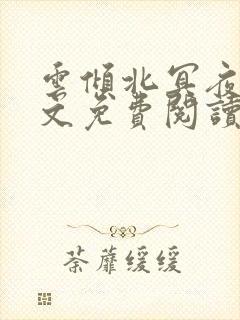 雲傾北冥夜
文免費閱讀
荼蘼缓缓